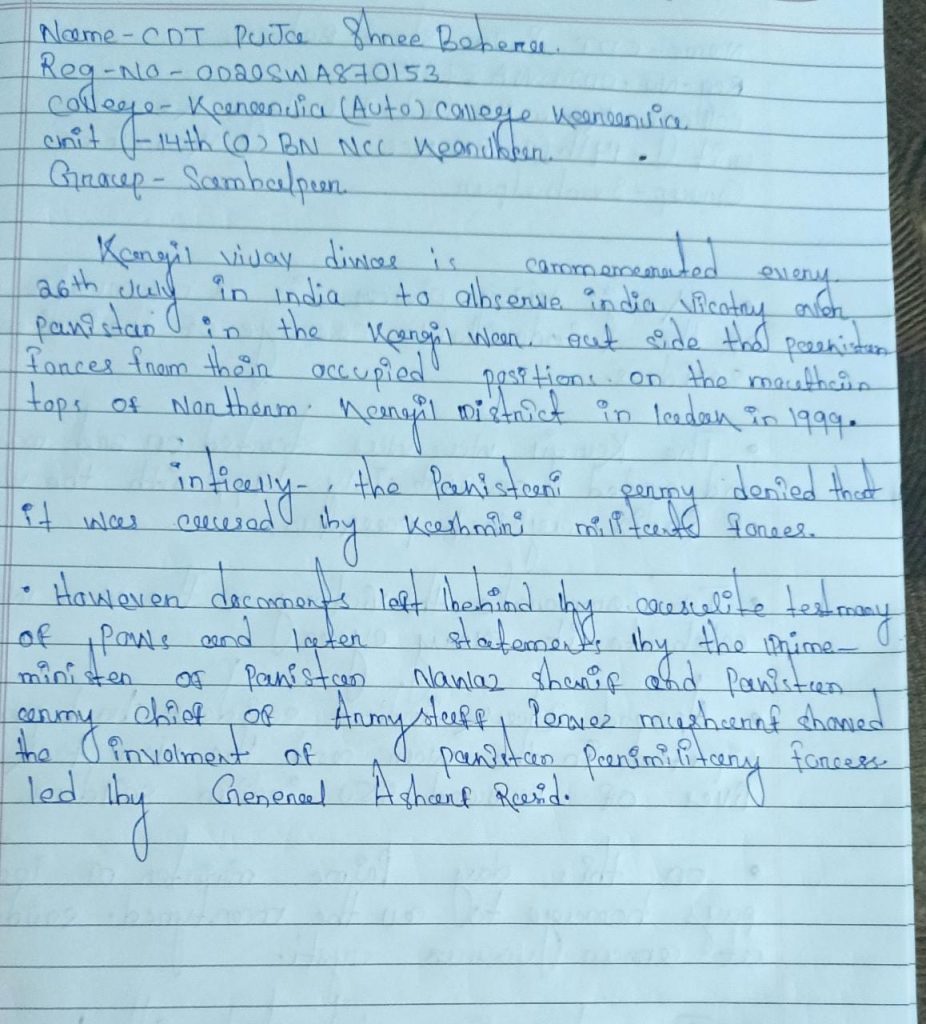 Name-CDT Pujta Shree Behera.
Reg-No - OD20SWA870153
College- Keonjhia (Auto) College Keonjhia
unit - 14th (O) BN NCC Keonjhar.
Group - Sambalpur
Kargil vijay diwas is commemorated every
26th July in india to observe india Vicotry over
panistan in the Kargil War. out side the pakistan
Forces from their occupied positions. on the mauthain
tops of Northern. Kargil District in ladak in 1999.
intially-, the Pakistani army denied that
it was caucesad by Kashmiri militants forces.
• However documents left behind by testmony
of Paws and later statements by the prime-
minister of Panistan Nawaz Sharif and Panistan
army chief of Army staff, Pervez musharraf showed
the involment of panistan Paramilitary forcess
led by General Asharf Rasid.